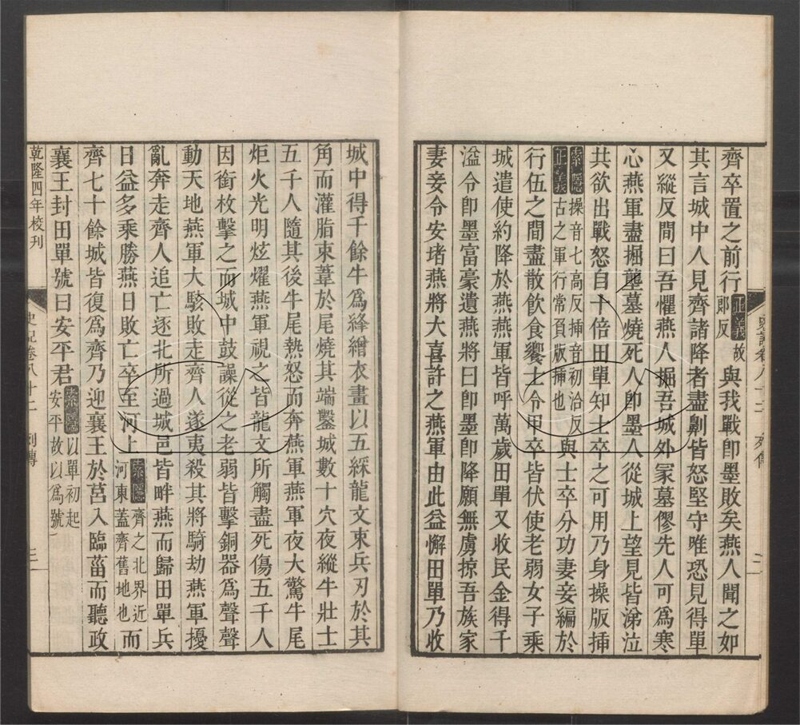 齊卒置之前行正義故郎反與我戰即墨敗矣燕人聞之如
其言城中人見齊諸降者盡劓皆怒堅守唯恐見得單
又縱反間曰吾懼燕人掘吾城外冢墓僇先人可爲寒
心燕軍盡掘壟墓燒死人即墨人從城上望見皆涕泣
共欲出戰怒自十倍田單知士卒之可用乃身操版插
索隱操音七高反插音初洽反正義古之軍行常負版插也與士卒分功妻妾編於
行伍之間盡散飲食饗士令甲卒皆伏使老弱女子乘
城遣使約降於燕燕軍皆呼萬歲田單又收民金得千
溢令即墨富豪遺燕將曰即墨即降願無虜掠吾族家
妻妾令安堵燕將大喜許之燕軍由此益懈田單乃收
城中得千餘牛爲絳繒衣畫以五綵龍文束兵刃於其
角而灌脂束葦於尾燒其端鑿城數十穴夜縱牛壯士
五千人隨其後牛尾熱怒而奔燕軍燕軍夜大驚牛尾
炬火光明炫燿燕軍視之皆龍文所觸盡死傷五千人
因銜枚擊之而城中鼓譟從之老弱皆擊銅器爲聲聲
動天地燕軍大駭敗走齊人遂夷殺其將騎劫燕軍擾
亂奔走齊人追亡逐北所過城邑皆畔燕而歸田單兵
日益多乘勝燕日敗亡卒至河上索隱河東蓋齊舊地也齊之北界近而
齊七十餘城皆復爲齊乃迎襄王於莒入臨菑而聽政
襄王封田單號曰安平君索隱以單初起安平故以爲號
乾隆四年校刊
史記卷八十二 列傳 三